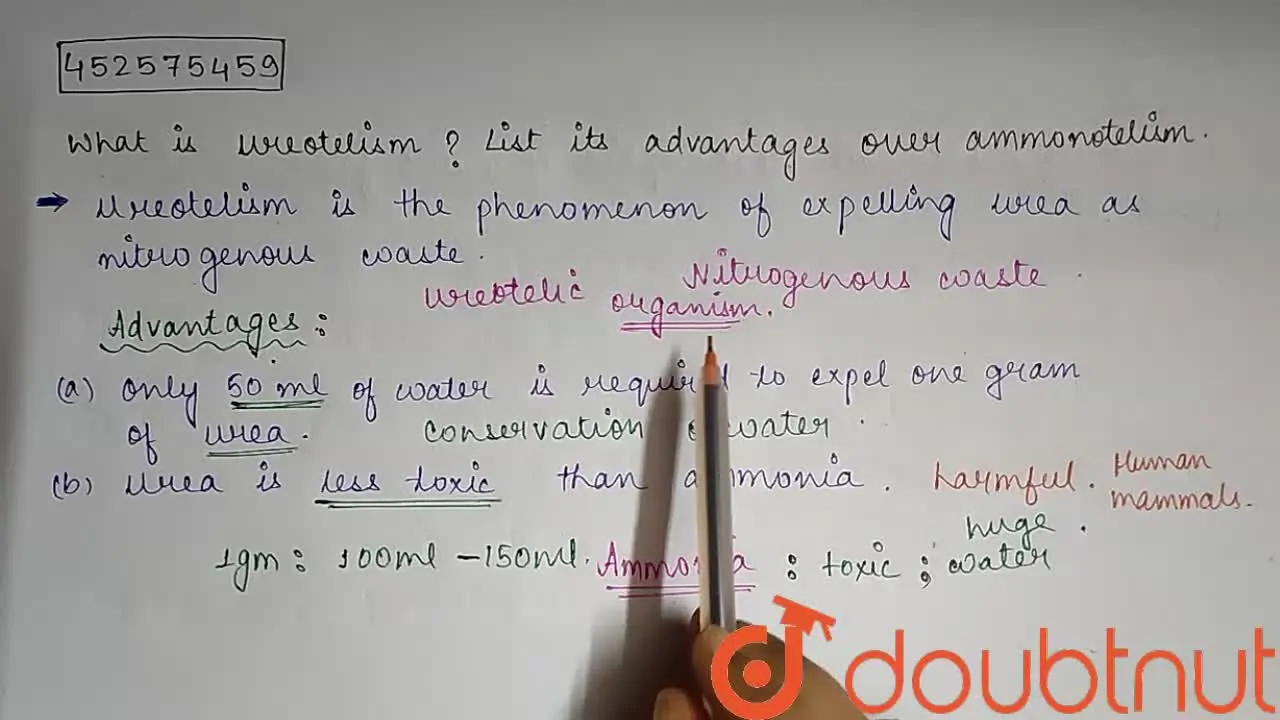 452575459
What is ureotelism ? List its advantages over ammonotelism.
→ Ureotelism is the phenomenon of expelling urea as
nitrogenous waste.
ureotelic organism. Nitrogenous waste
Advantages :
(a) only 50 ml of water is required to expel one gram
of urea. conservation of water.
(b) urea is less toxic than ammonia. harmful. Human
mammals.
1gm : 100ml - 150ml. Ammonia : toxic ; huge.
water
doubtnut